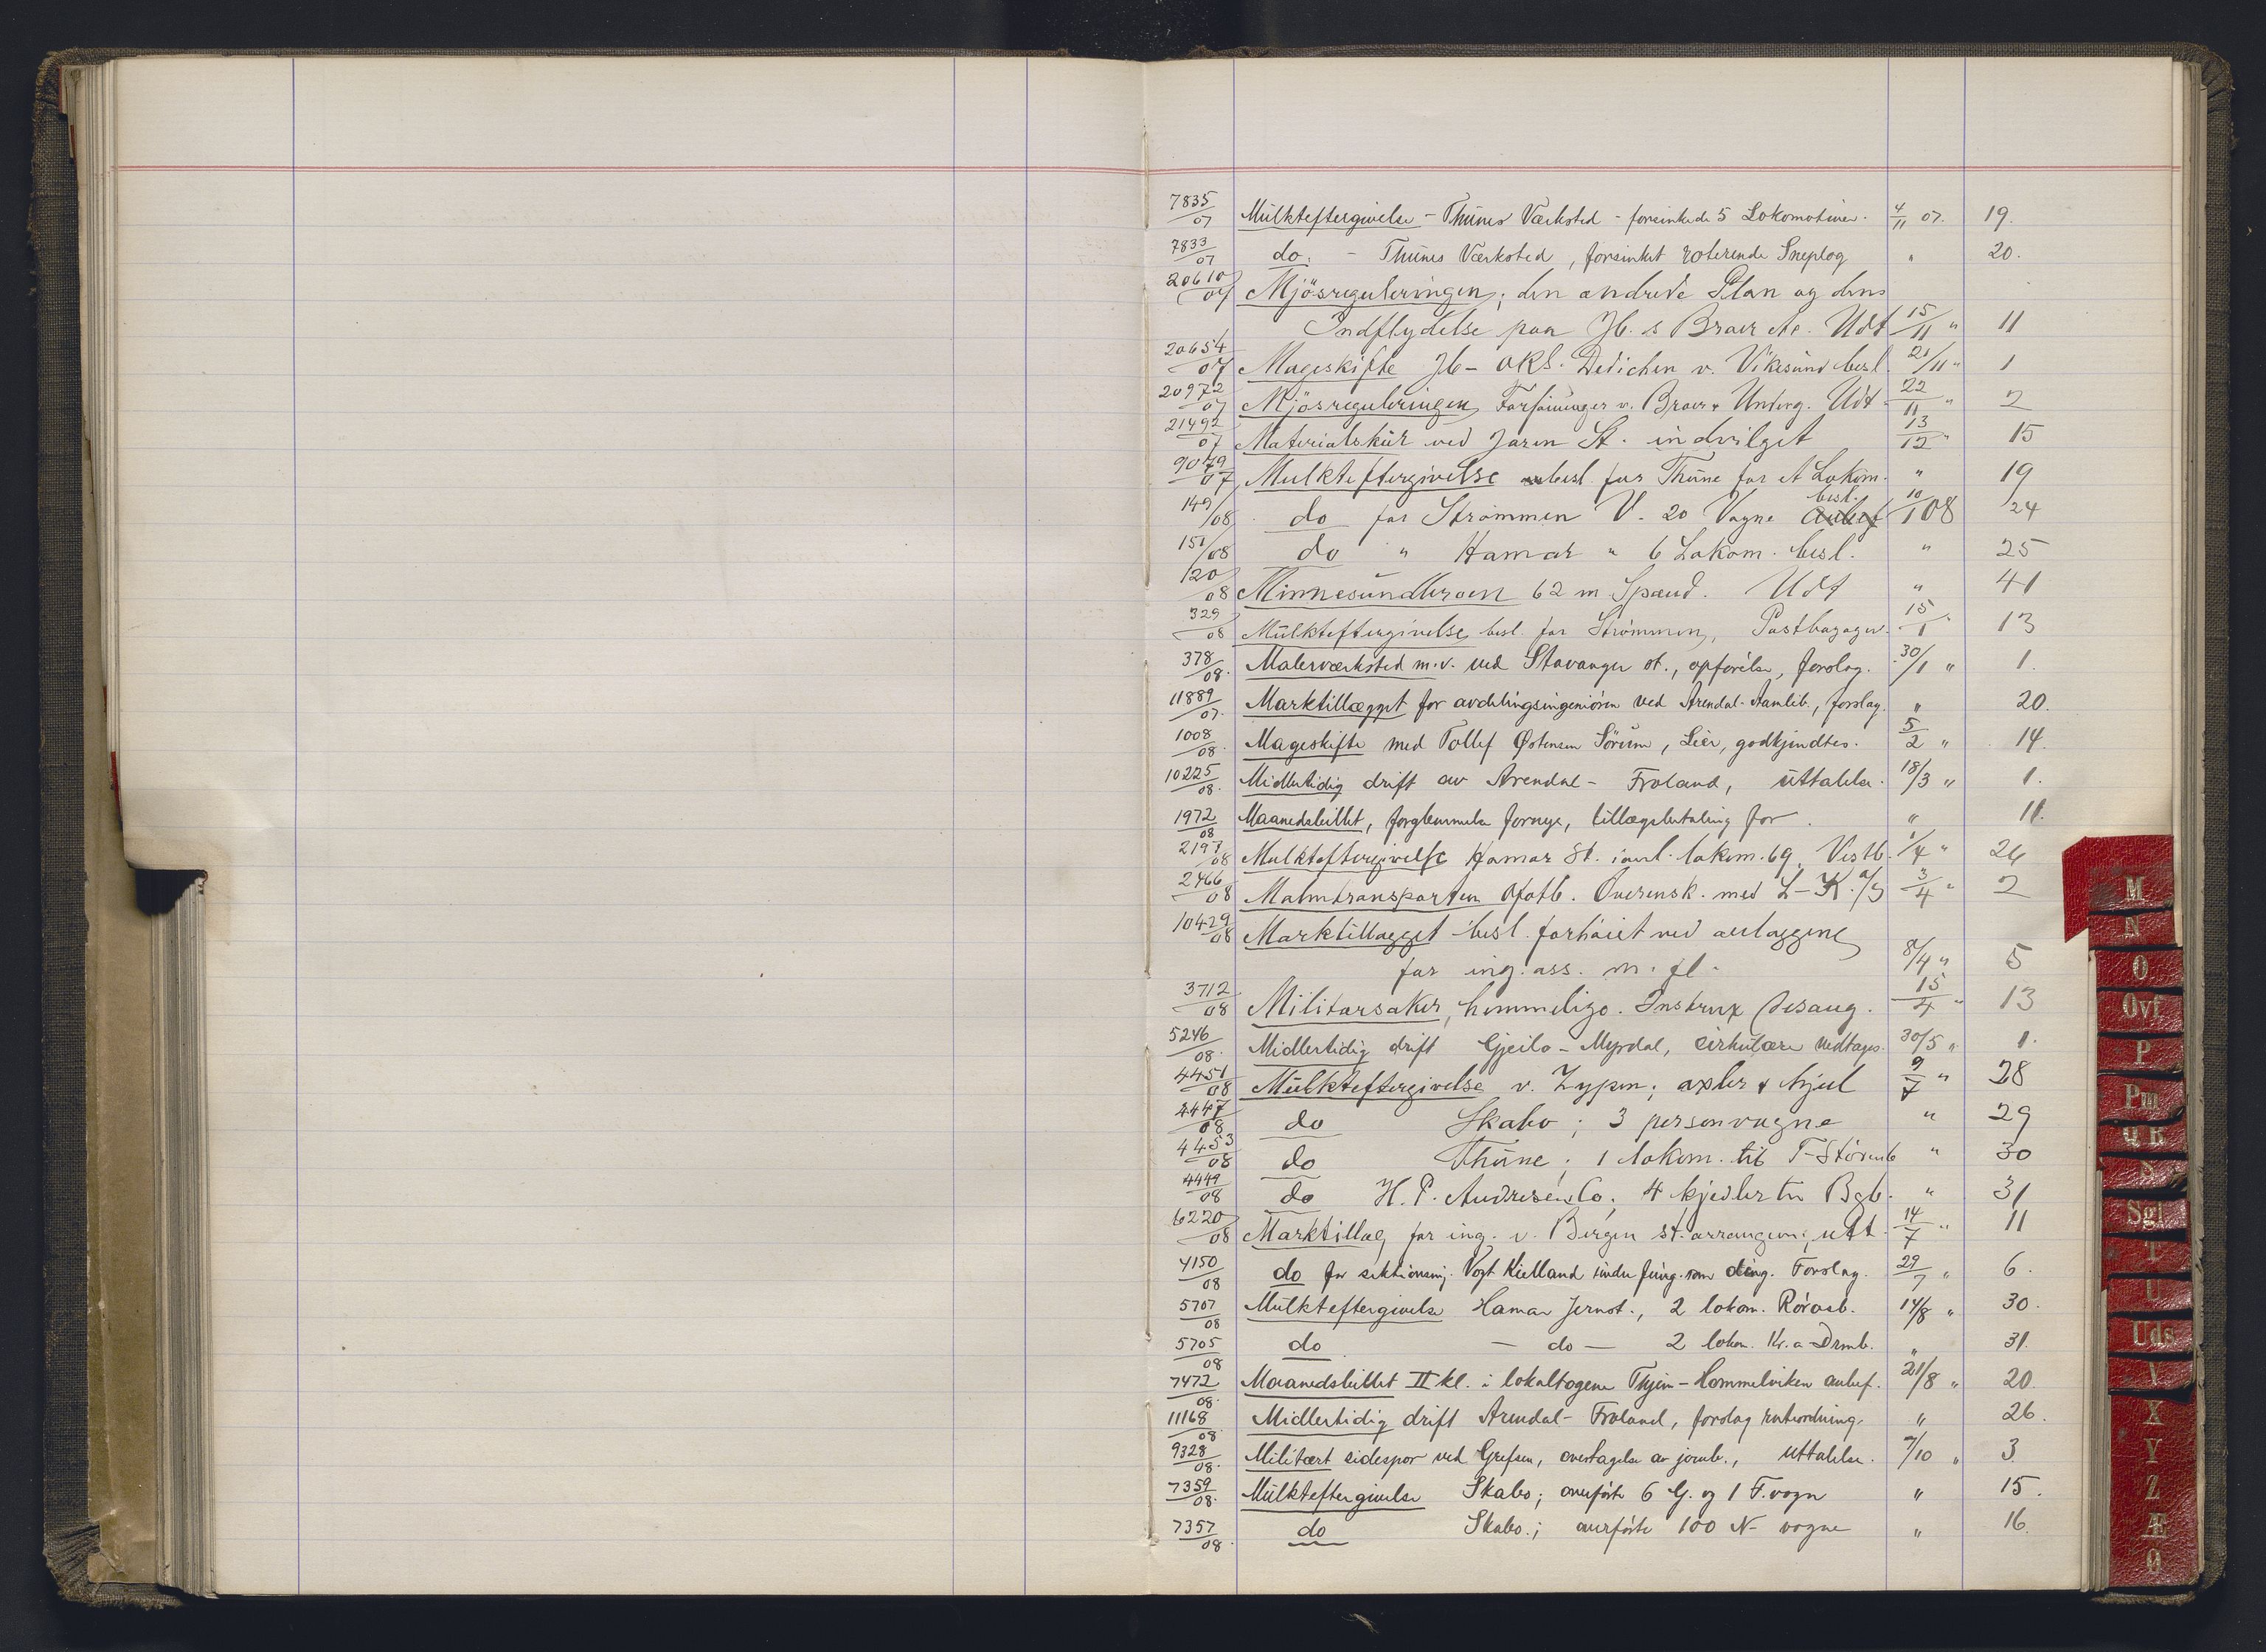 7835/07 Mulkteftergivelse - Thunes Værksted - forsinkede 5 Lokomotiver. 4/11 07. 19.
7833/07 do. - Thunes Værksted, forsinket roterende Sneplog " 20.
20610/07 Mjösreguleringen; den andrede Plan og dens
Indflydelse paa Jb.s Broer etc. Udt 15/11 " 11
20654/07 Mageskifte Jb - OKS. Dedichen v. Vikesund besl. 21/11 " 1
20972/07 Mjösreguleringen, v. Broer & Underg. Udt. 22/11 " 2
21492/07 Materialskur ved Jaren St. indvilget 13/12 " 15
9079/07 Mulkteftergivelse besl. for Thune for A Lokom. " 19
149/08 do for Strømmen V. 20 Vogne besl. 10/1 08 24
151/08 do " Hamar " 6 Lokom. besl. " 25
120/08 Minnesundbroen 62 m Spænd. Udt " 41
329/08 Mulkteftergivelse besl. for Strömmen, Postbagagev. 15/1 " 13
378/08. Malerværksted m.v. ved Stavanger st., opförelse, forslag. 30/1 " 1.
11889/07. Marktillægget for avdelingsingeniören ved Arendal-Aamlib., forslag. " 20.
1008/08. Mageskifte med Tollef Østensen Sörum, Lier, godkjendtes. 5/2 " 14.
10225/08. Midlertidig drift av Arendal - Froland, uttalelse. 18/3 " 1.
1972/08 Maanedsbillet, forglemmelse fornye, tillægsbetaling for. " 11.
2197/08 Mulkteftergivelse Hamar St. lokom. 69, Vestb. 1/4 " 26
2466/08 Malmtransporten Ofotb. Overensk. med L-K. A/S 3/4 " 2
10429/08 Marktillægget besl. forhöiet ved anlæggene
for ing. ass. m. fl. 8/4 " 5
3712/08 Militærsaker, hemmelige. Instrux desang. 15/4 " 13
5246/08. Midlertidig drift Gjeilo - Myrdal, cirkulære vedtages. 30/5 " 1.
4451/08 Mulkteftergivelse v. Zypen; axler & hjul 9/7 " 28
4447/08 do Skabo; 3 personvogne " 29
4453/08 do Thune; 1 lokom. til T-Størenb " 30
4449/08 do H. P. Andresens Co; 4 kjedler til Bgb. " 31
6220/08 Marktillæg for ing. v. Bergen st. arrangem; utt. 14/7 " 11
4150/08 do for sektionsing. Vogt Kielland under fung. som ding. Forslag. 29/7 " 6.
5707/08 Mulkteftergivelse Hamar Jernst., 2 lokom. Rörosb. 14/8 " 30.
5705/08 do - do - 2 lokom. Kr.a-Drmb. " 31.
7472/08. Maanedsbillet II kl. i lokaltogene Thjem - Hommelviken anbef. 21/8 " 20.
11168/08. Midlertidig drift Arendal - Froland, forslag ruteordning. " 26.
9328/08. Militært sidespor ved Grefsen, overtagelse av jernb., uttalelse. 7/10 " 3
7359/08. Mulkteftergivelse Skabo; overförte 6 G. og 1 F. vogn " 15.
7357/08. do Skabo.; overförte 100 N- vogne " 16.
M
N
O
Ovf
P
Pm
Q R
S
Sgl
T
U
Uds
V
X
Y
Z
Æ
Ø